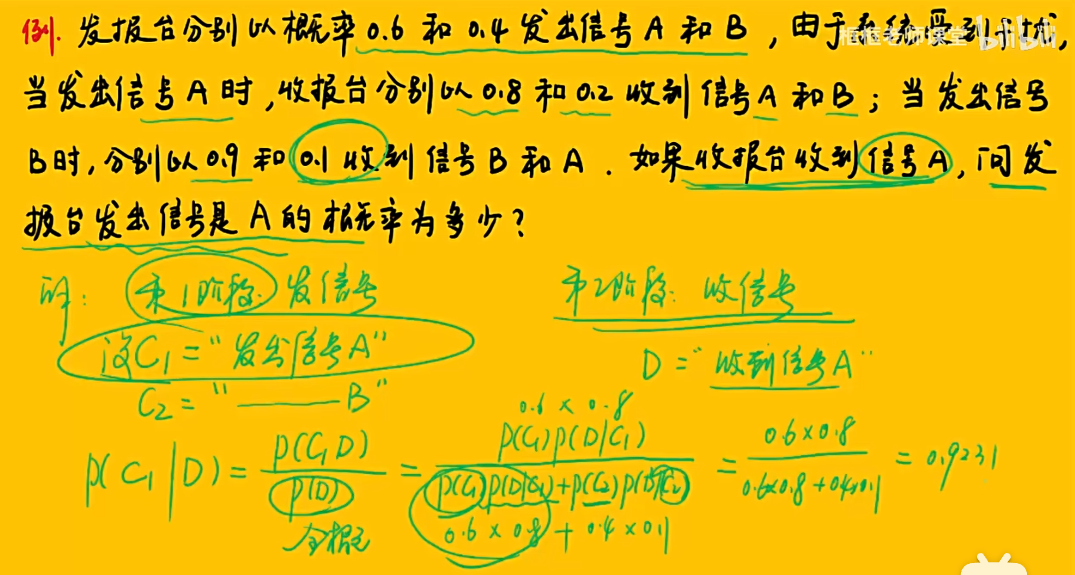 例. 发报台分别以概率0.6和0.4发出信号A和B，由于系统受到干扰,
框框老师课堂 bilibili
当发出信号A时,收报台分别以0.8和0.2收到信号A和B；当发出信号
B时,分别以0.9和0.1收到信号B和A. 如果收报台收到信号A,问发
报台发出信号是A的概率为多少?
解: 第1阶段: 发信号 第2阶段: 收信号
设C₁="发出信号A" D="收到信号A"
C₂="——B"
0.6×0.8
P(C₁|D)=P(C₁D)/P(D)=P(C₁)P(D|C₁)/(P(C₁)P(D|C₁)+P(C₂)P(D|C₂))=0.6×0.8/(0.6×0.8+0.4×0.1)=0.9231
全概 0.6×0.8+0.4×0.1